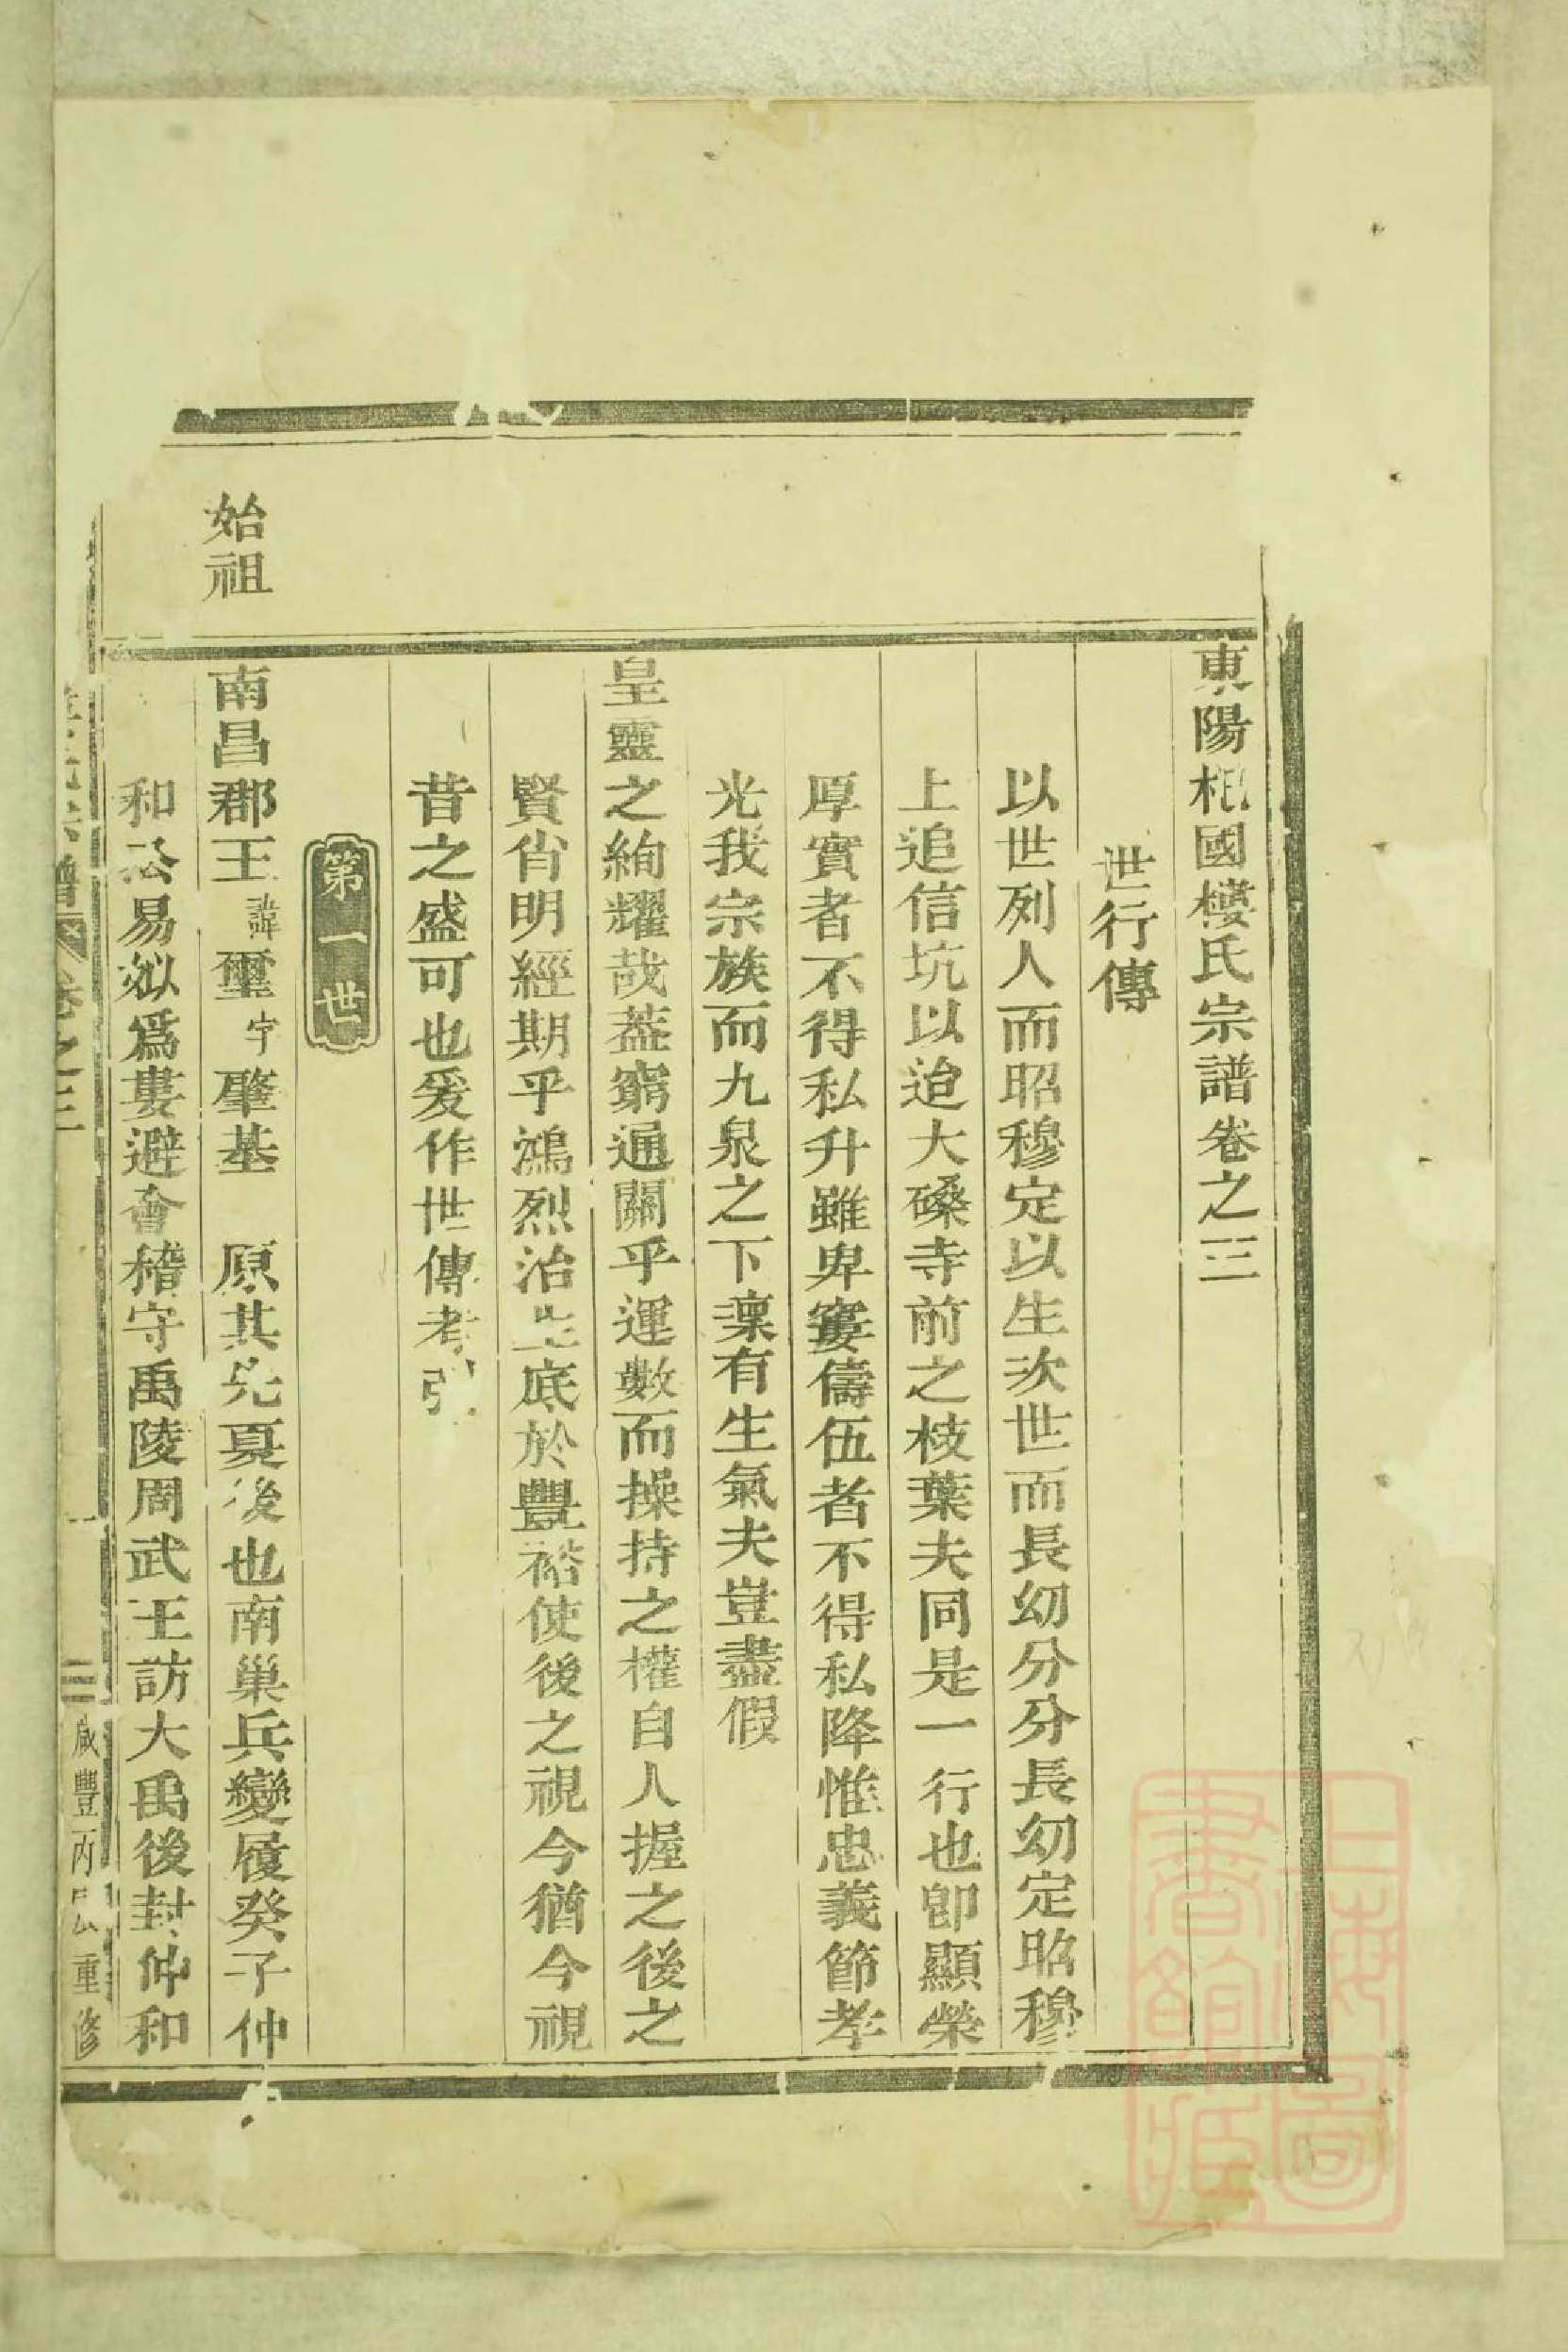 東陽杞國樓氏宗譜卷之三
世行傳
以世列人而昭穆定以生次世而長幼分分長幼定昭穆
上追信坑以迨大磉寺前之枝葉夫同是一行也卽顯榮
厚實者不得私升雖卑窶儔伍者不得私降惟忠義節孝
光我宗族而九泉之下凜有生氣夫豈盡假
皇靈之絢耀哉葢窮通關乎運數而操持之權自人握之後之
賢肖明經期乎鴻烈治生底於豐裕使後之視今猶今視
昔之盛可也爰作世傳者引
第一世
始祖
南昌郡王諱璽字肇基 原其先夏後也南巢兵變履癸子仲
和公易姒爲婁避會稽守禹陵周武王訪大禹後封仲和
宗譜 卷之三 一 咸豐丙辰重修
上海圖書館藏